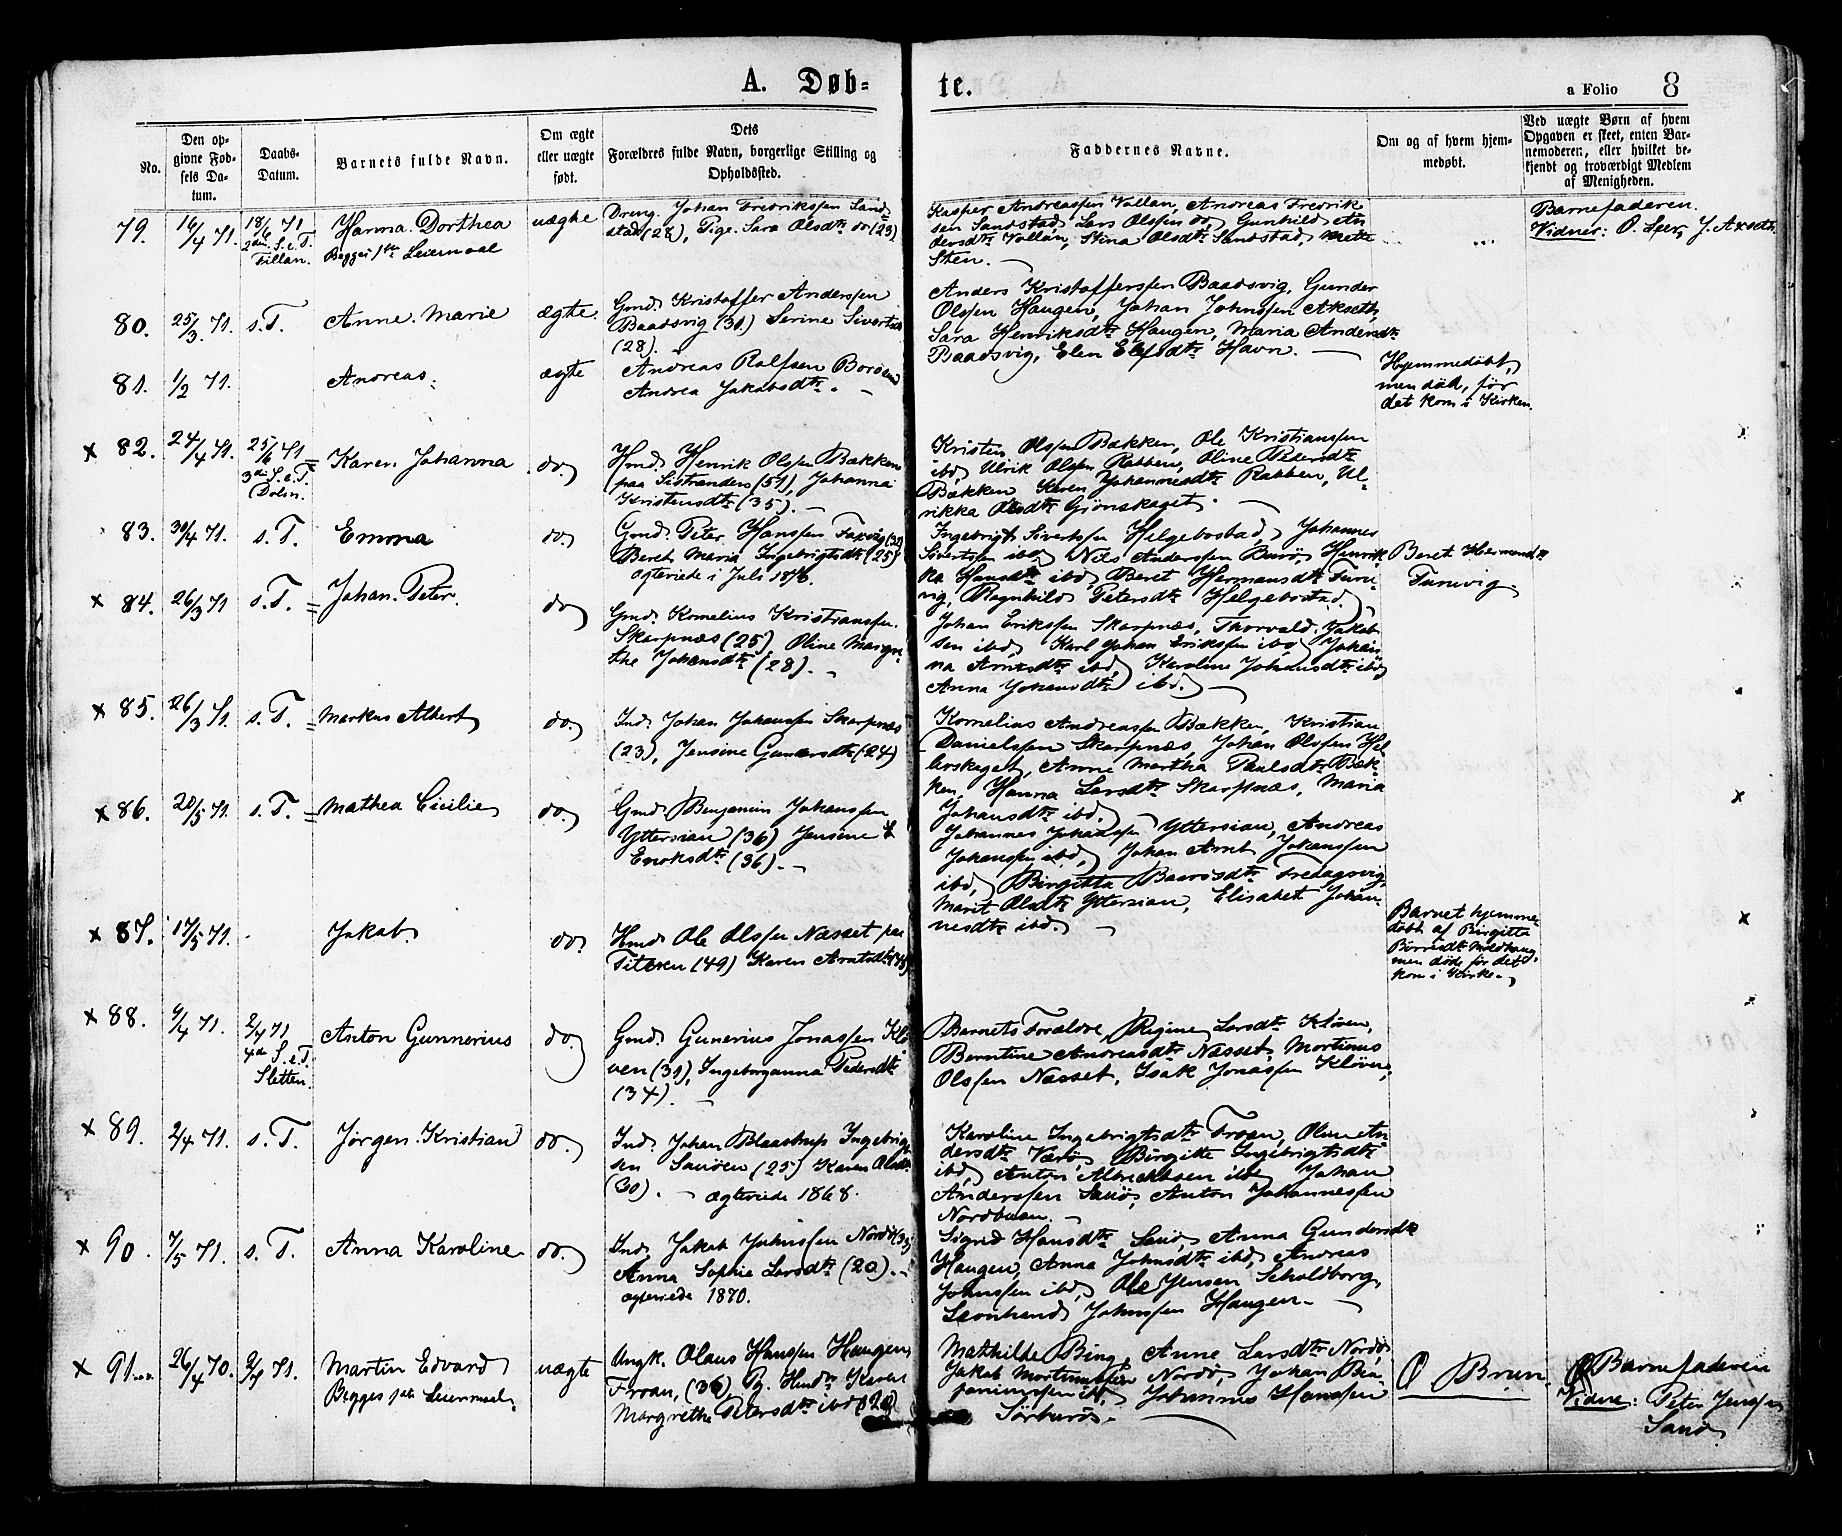 A. Døb-
te.
a Folio 8
No.
Den op-
givne Fød-
sels Da-
tum.
Daabs-
Datum.
Barnets fulde Navn.
Om ægte
eller uægte
født.
Dets
Forældres fulde Navn, borgerlige Stilling og
Opholdssted.
Faddernes Navne.
Om og af hvem hjem-
medøbt.
Ved uægte Børn af hvem
Opgaven er skeet, enten Bar-
nemoderen, eller hvilket be-
kjendt og troværdigt Medlem
af Menigheden.
79.
16/4 71.
18/6 71
2den S.e.T.
Fillan.
Hanna Dorthea
Begges 1ste Leiermaal
uægte
Dreng. Johan Fredrikssen Sand-
stad (28), Pige. Sara Olsdtr do (23)
Kasper Andreassen Vollan, Andreas Fredrik-
sen Sandstad, Lars Olssen do, Gunhild An-
dersdtr Vollan, Stina Olsdtr Sandstad, Mette
Sten.
Barnefaderen.
Vidner: O. Seer, J. Akseth
80.
25/3 71.
s.T.
Anne Marie
ægte.
Gmd. Kristoffer Anderssen
Baadsvig (31) Serine Sivertsdtr
(28).
Anders Kristofferssen Baadsvig, Gunder
Olssen Haugen, Johan Johnssen Akseth,
Sara Henriksdtr Haugen, Maria Andersdtr
Baadsvig, Elen Elefsdtr Havn.
81.
1/2 71.
Andreas.
ægte
Andreas Rolfsen
Andrea Jakobsdtr.
Hjemmedøbt,
men død, før
det kom i Kirken.
x 82.
24/4 71.
25/6 71
3die S.e.T.
Dolm.
Karen Johanna
do
Hmd. Henrik Olssen Bækken
paa Sistranden (51), Johanna
Kristensdtr (35).
Kristen Olssen Bækken, Ole Kristianssen
ibd, Ulrik Olssen Rabben, Oline Pedersdtr
Bækken, Karen Johannesdtr Rabben, Ul-
rikka Olsdtr Gjønskaget.
83.
30/4 71.
s.T.
Emma
do
Gmd. Peter Hanssen Faxvåg (32)
Beret Maria Ingebrigtsdtr (25)
Ægteviede i Juli 1870.
Ingebrigt Sivertsen Helgebostad, Johannes
Sivertsen ibd, Nils Anderssen Burø, Henrik-
ka Hansdtr ibd, Beret Hermansdtr Funi-
vig, Ragnhild Petersdtr Helgebostad.
Beret Hermansdtr
Funivig
x 84.
26/3 71
s.T.
Johan Peter.
do
Gmd. Kornelius Kristianssen
Skarpnæs (25), Oline Margre-
the Johansdtr (28).
Johan Erikssen Skarpnæs, Thorvald Jakob-
sen ibd, Karl Johan Erikssen ibd, Johan-
na Arnesdtr ibd, Karoline Johansdtr ibd,
Anna Johansdtr ibd.
x 85.
26/3 71.
s.T.
Markus Albert
do
Ind. Johan Johanssen Skarpnæs
(23), Jensine Gundersdtr (24)
Kornelius Andreassen Bækken, Kristian
Danielssen Skarpnæs, Johan Olssen Hel-
lerskaget, Anne Martha Paulsdtr Bæk-
ken, Hanna Larsdtr Skarpnæs, Maria
Johansdtr ibd.
x 86.
20/5 71.
s.T.
Mathea Cicilie
do.
Gmd Benjamin Johanssen
Yttersian (36) Jensine
Enoksdtr (36).
Johannes Johanssen Yttersian, Andreas
Johanssen ibd, Johan Arnt Johanssen
ibd, Birgitta Baarsdtr Fredagsvig,
Marit Olsdtr Yttersian, Elisabet Johan-
nesdtr ibd.
x
x 87.
17/5 71.
Jakob.
do.
Hmd Ole Olssen Næsset paa
Titeren (49) Karen Arntsdtr (44)
Barnet hjemme-
døbt af Birgitta
Børresdtr Moldhaug,
men døde før det
kom i Kirke.
x
x 88.
9/4 71.
2/7 71
4de S.e.T.
Sletten.
Anton Gunnerius
do.
Gmd. Gunerius Jonassen Klø-
ven (31), Ingeborganna Pedersdtr
(34).
Barnets Forældre, Regine Larsdtr Kløven,
Berntine Andreasdtr Næsset, Mortinus
Olssen Næsset, Isak Jonassen Kløven,
x 89.
2/4 71.
s.T.
Jørgen Kristian
do.
Ind. Johan Blaastrup Ingebrigt-
sen Sauøen (25) Karen Olsdtr
(30). – Ægteviede 1868.
Karoline Ingebrigtsdtr Froan, Oline An-
dersdtr Værø, Birgitte Ingebrigtsdtr
ibd, Anton Albrektsen ibd, Johan
Anderssen Sauø, Anton Johannessen
Nordbuan.
x 90.
7/5 71.
s.T.
Anna Karoline
do.
Ind. Jakob Johnssen Nordø (33)
Anna Sophie Larsdtr (20).
Ægteviede 1870.
Sigrid Hansdtr Sauø, Anna Gundersdtr
Haugen, Anna Johnsdtr ibd, Andreas
Johnssen ibd, Ole Jensen Scholdborg,
Leonhard Johnssen Haugen.
x 91.
26/4 70.
2/7 71.
Martin Edvard
Begges 1ste Leiermaal.
uægte
Ungk. Olaus Hanssen Haugen
Froan, (36) Pg. Hmdtr Karen
Margrethe Petersdtr ibd (20)
Mathilde Bing, Anne Larsdtr Nordø,
Jakob Mortinussen Nordø, Johan Ben-
jaminssen ibd, Johannes Hanssen
Sørburø.
O Bruun.
Barnefaderen
Vidne: Peter Jenssen
Sauø